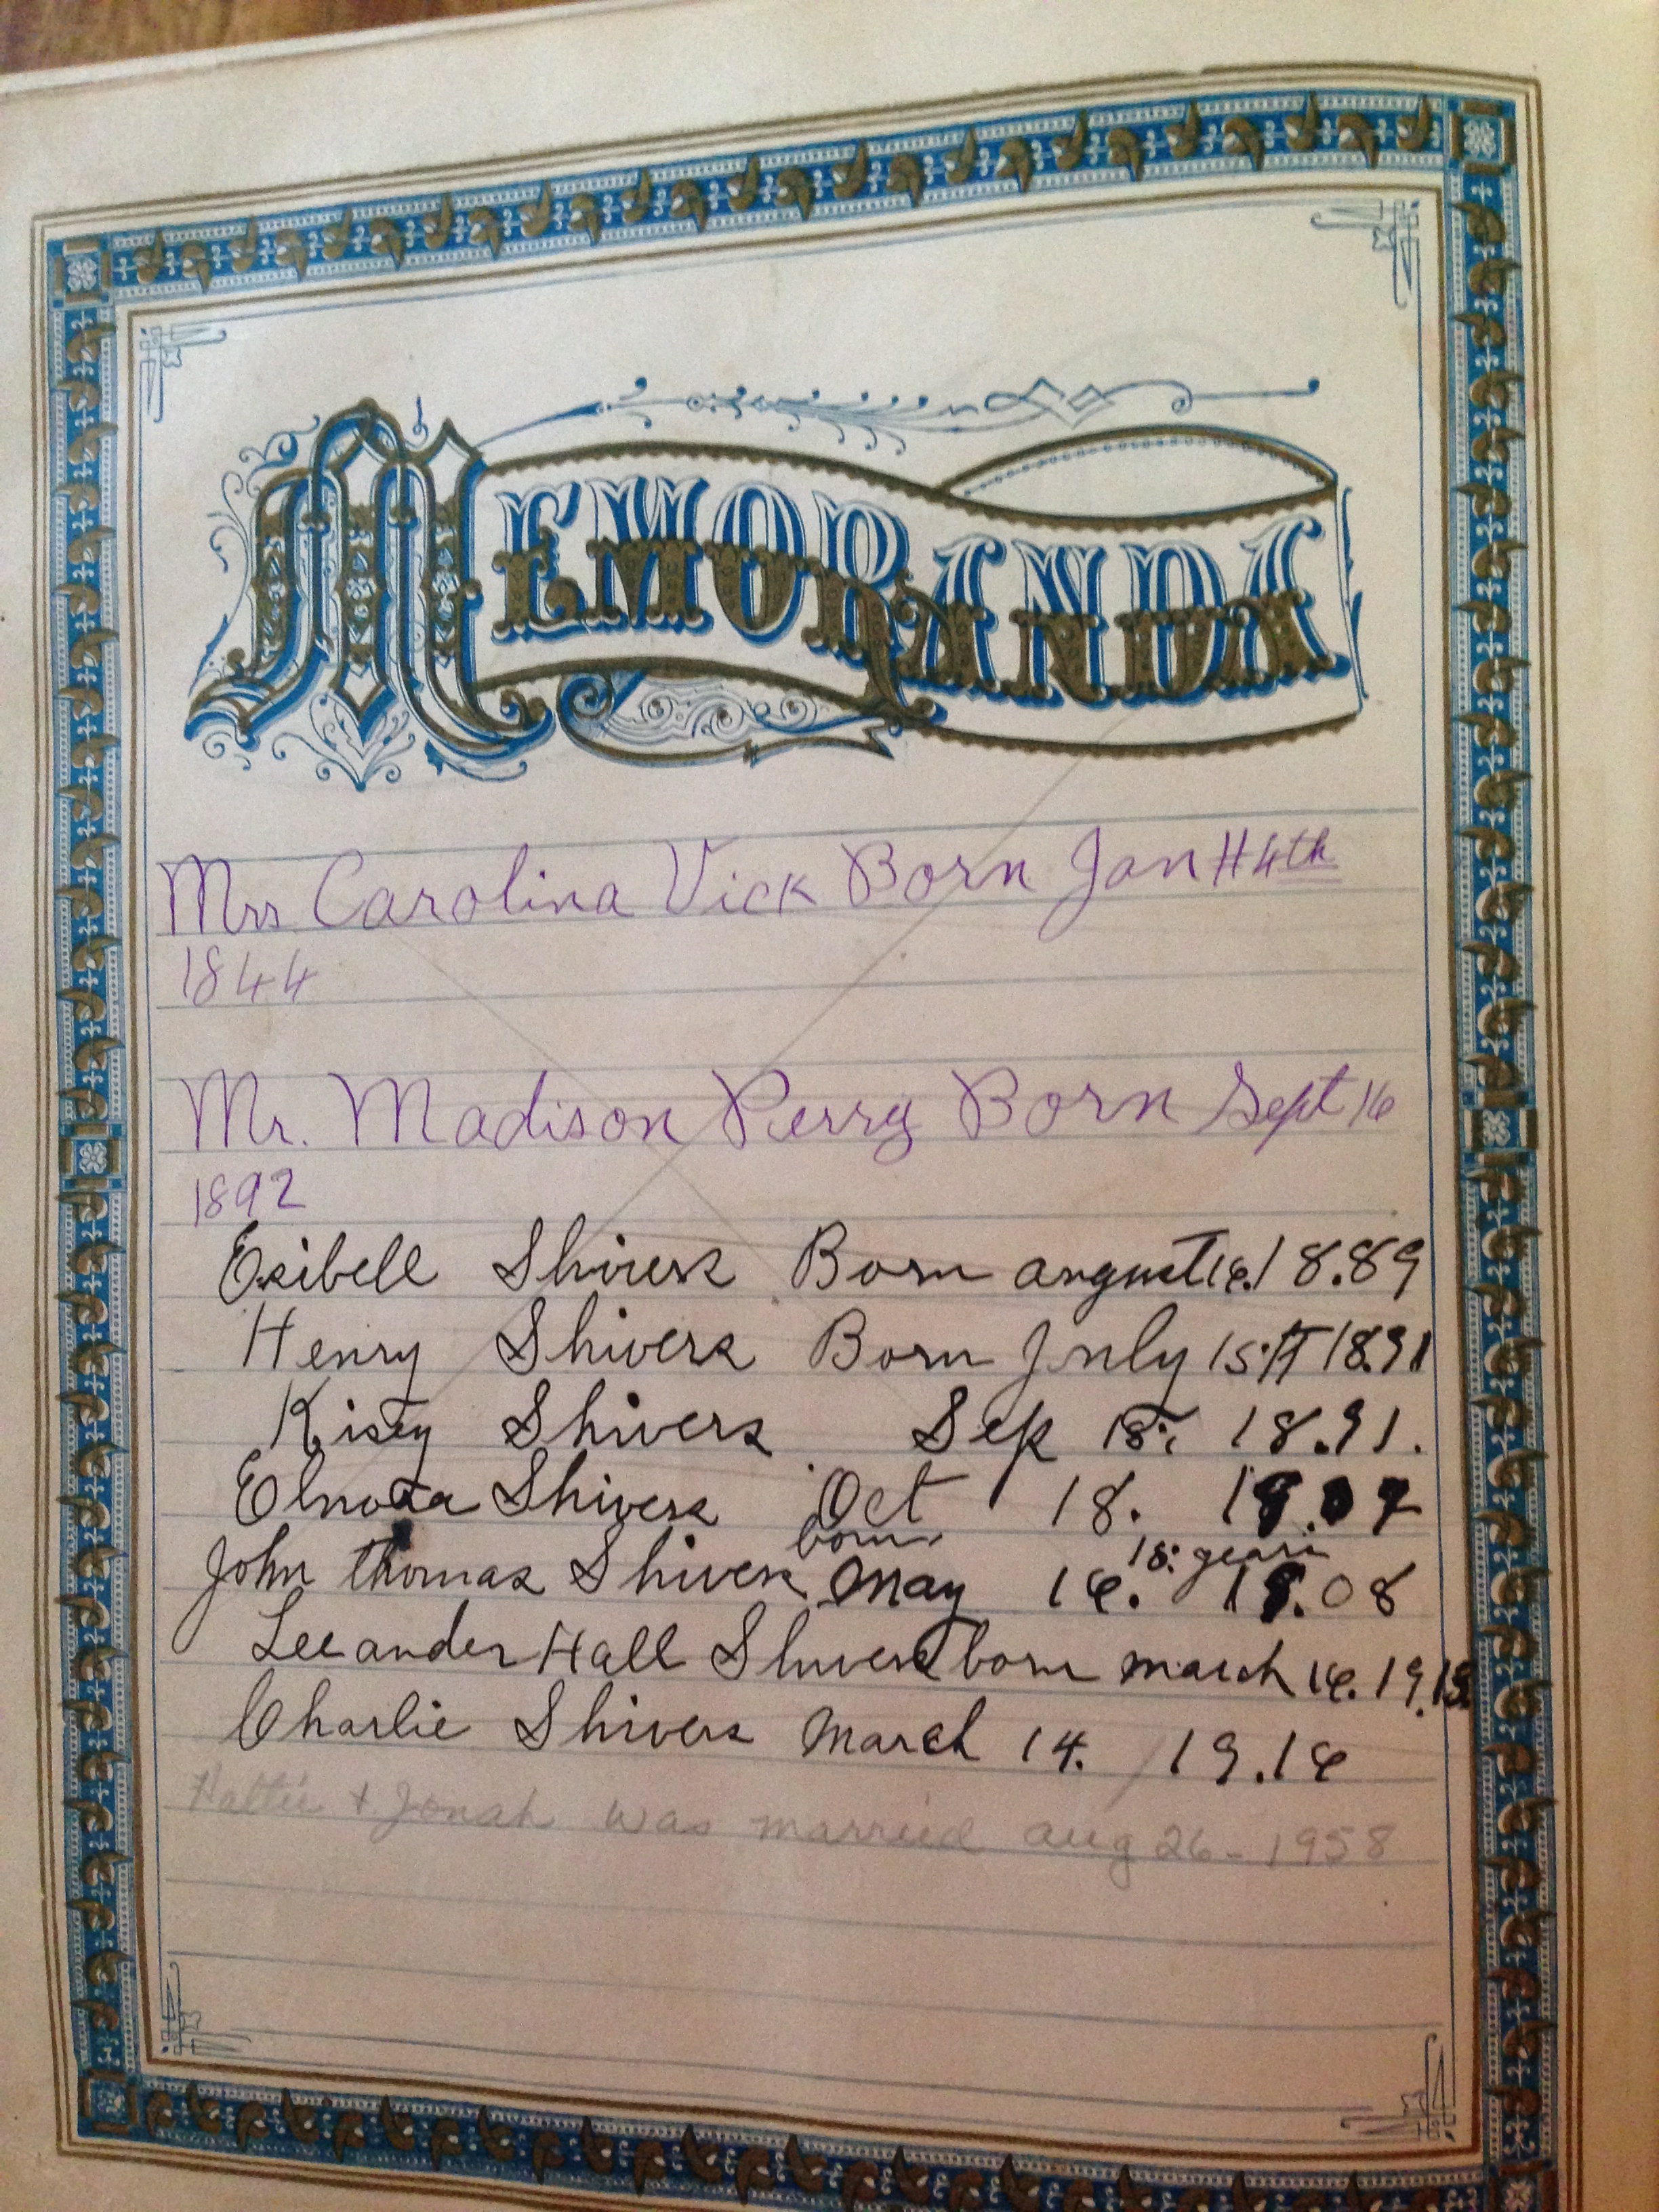 MEMORANDA
Mrs Carolina Vick Born Jan 4th
1844
Mr. Madison Perry Born Sept 16
1892
Shivers Born august 18.89
Henry Shivers Born July 15 18.91
Shivers Sep 18 18.91.
Elnora Shivers Oct 18.
born 18: years
John thomas Shivers May 16. 19.08
Leeander Hall Shivers born march 16. 19.
Charlie Shivers March 14. 19.16
Hattie + Jonah was married aug 26 - 1958